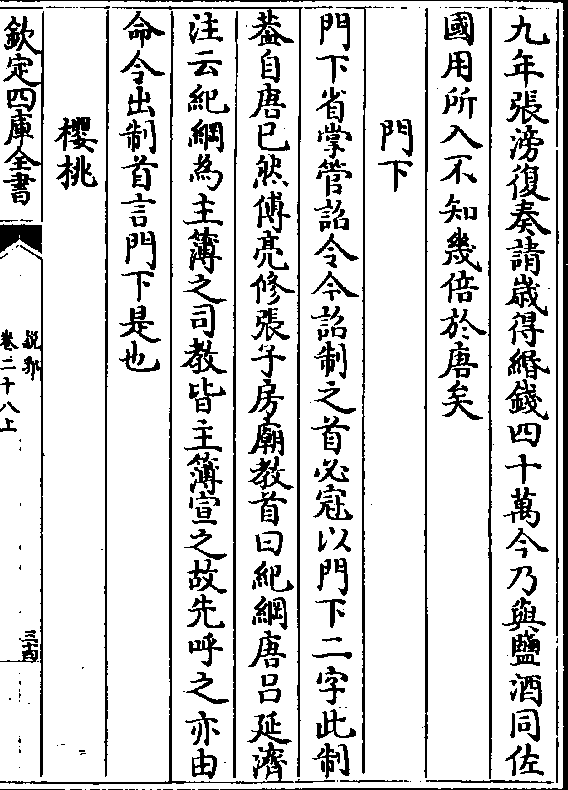 九年張滂復奏請嵗得緡錢四十萬今乃與鹽酒同佐
國用所入不知幾倍於唐矣
門下
門下省掌管詔令今詔制之首必寇以門下二字此制
葢自唐已然傅亮修張子房廟教首曰紀綱唐呂延濟
注云紀綱為主簿之司教皆主簿宣之故先呼之亦由
命令出制首言門下是也
櫻桃
欽定四庫全書
說郛
卷二十八上
三古